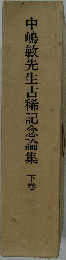 中嶋敏先生古稀記念論集 下巻